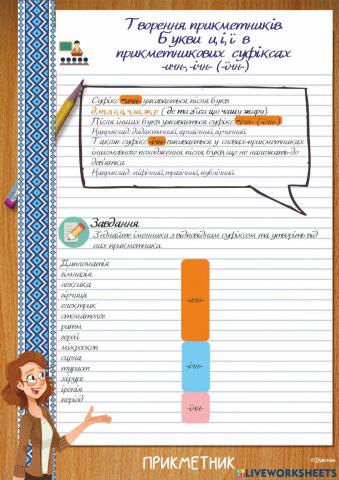 Творення прикметників.
Букви и, і, ї в
прикметникових суфіксах
-ичн-, -ічн- (-їчн-)
Суфікс -ичн- уживається після букв
д, т, з, с, ц, ч, ш, ж, р ( де ти з'їси цю чашу жиру).
Після інших букв уживається суфікс -ічн- (-їчн-).
Наприклад: дидактичний, архаїчний, гірчичний.
Також суфікс -ічн- уживається у словах-прикметниках
іншомовного походження після букв, що не належать до
дев'ятки.
Наприклад: міфічний, трагічний, публічний.
Завдання.
З'єднайте іменники з відповідним суфіксом та утворіть від
них прикметники.
Дипломатія
гімназія
лексика
гірчиця
електрик
стоматолог
ритм
герой
мікроскоп
сцена
турист
хірург
іронія
період
-ичн-
-ічн-
-їчн-
ПРИКМЕТНИК
LIVEWORKSHEETS